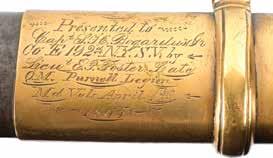 Presented to
Capt. S. C. Bogardus Jr
Co E 192nd N.Y.S.V. by
Lieut E. Foster Late
Q.M. Purnell Legion
Md Vols April 1st
1865